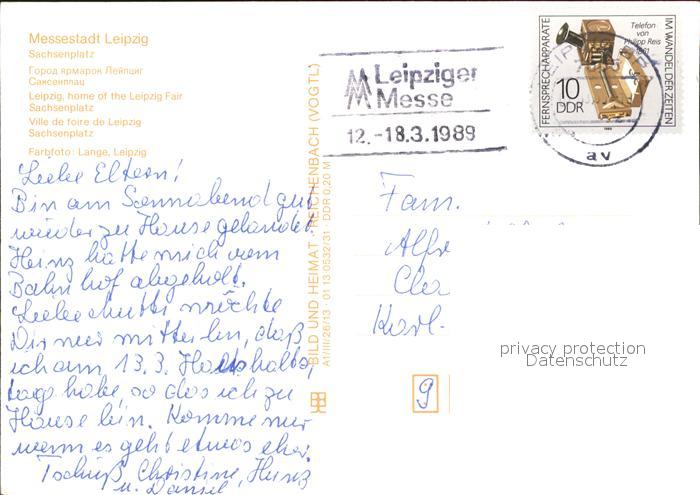 Messestadt Leipzig
Sachsenplatz
Город ярмарок Лейпциг
Саксенплац
Leipzig, home of the Leipzig Fair
Sachsenplatz
Ville de foire de Leipzig
Sachsenplatz
Farbfoto: Lange, Leipzig
Liebe Eltern!
Bin am Sonnabend gut
wieder zu Hause gelandet.
Heinz hatte mich vom
Bahnhof abgeholt.
Liebe Mutti möchte
Dir nur mitteilen, daß
ich am 13.3. Haushalts,
tag habe, so das ich zu
Hause bin. Komme nur
wenn es geht etwas eher.
Tschüß Christine, Heinz
u. Daniel
BILD UND HEIMAT · REICHENBACH (VOGTL)
A1/III/26/13 · 01 13 0532/31 · DDR 0,20 M
Leipziger
Messe
12.-18.3.1989
FERNSPRECHAPPARATE
IM WANDEL DER ZEITEN
Telefon
von
Philipp Reis
1861
10
DDR
av
Fam.
Alfr
Cla
Karl-
9
privacy protection
Datenschutz